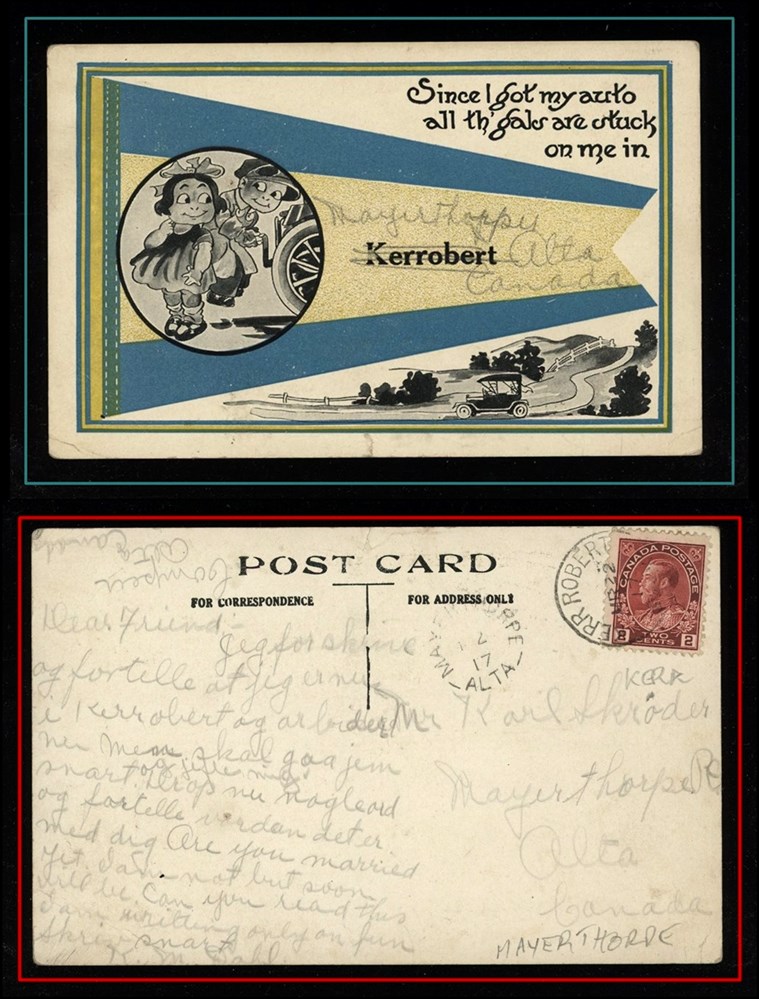 Since I got my auto
all th' gals are stuck
on me in
Mayerthorpy
Kerrobert Alta
Canada
Alta Canada
POST CARD
FOR CORRESPONDENCE
FOR ADDRESS ONLY
KERROBER
22
CANADA POSTAGE
2 TWO CENTS 2
MAYERTHORPE
2
17
ALTA
Dear Friend
Jeg for skrive
og fortelle at jeg er nu
i Kerrobert og arbider
nu men skal gaa jem
snart Drop nu nogle ord
og fortelle vordan det er
med dig Are you married
yet I am not but soon
will be Can you read this
I am writing only on fun
Skriv snart
K. M. Dahl
KERR
Mr Karl Skroder
Mayerthorpe
Alta
Canada
MAYERTHORPE